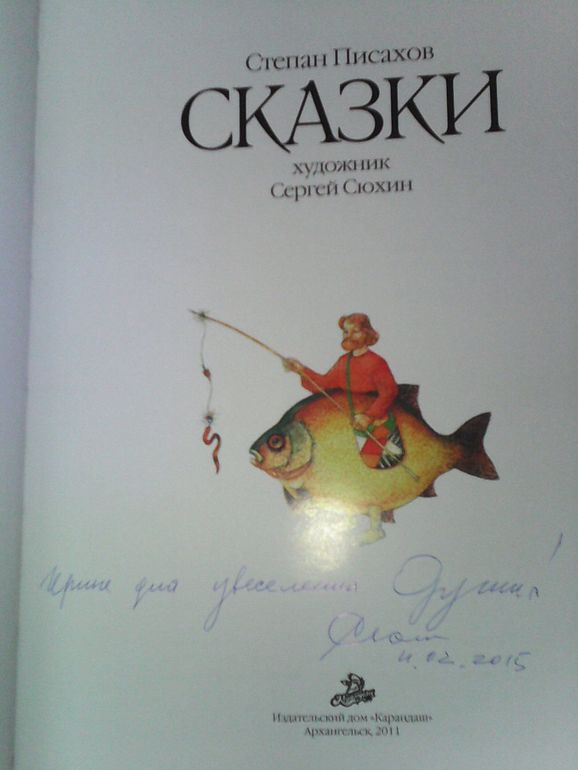 Степан Писахов
СКАЗКИ
художник
Сергей Сюхин
Ирине для увеселения Души!
11.02.2015
Издательский дом «Карандаш»
Архангельск, 2011